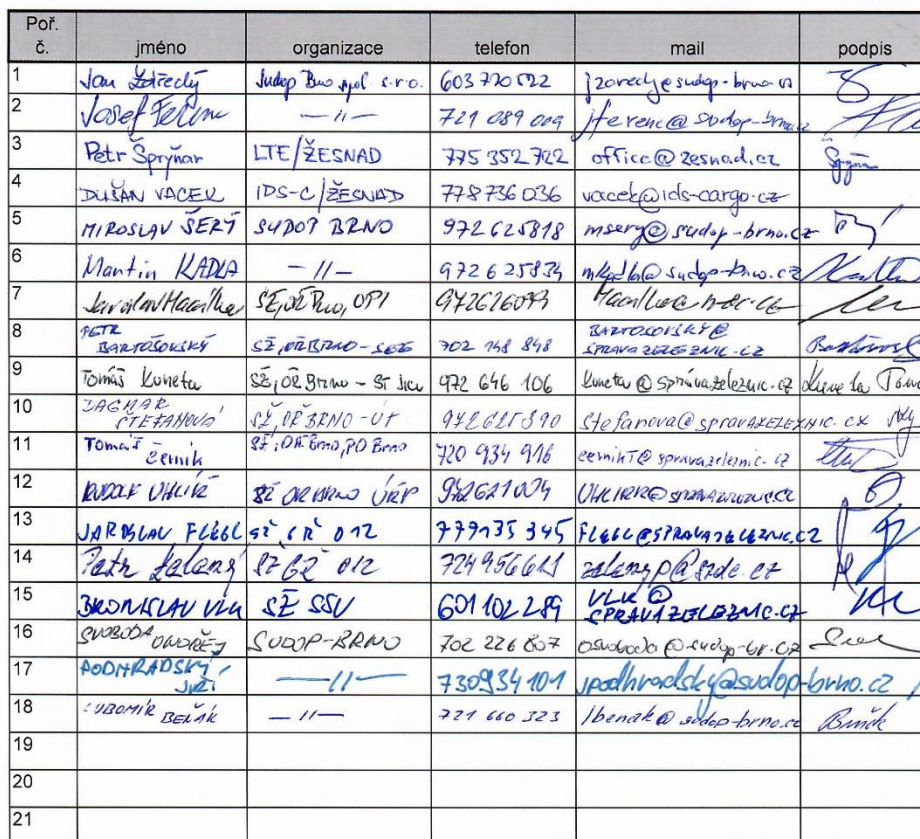 Poř. č. jméno organizace telefon mail podpis
1 Jan Zářecký Sudop Brno spol. s.r.o. 603 770 522
2 Josef Ferenc —〃— 721 089 009 jferenc@sudop-brno.cz
3 Petr Šprýňar LTE/ŽESNAD 775 352 722 office@zesnad.cz
4 DUŠAN VACEK IDS-C/ŽESNAD 778 736 036 vacek@ids-cargo.cz
5 MIROSLAV ŠERÝ SUDOP BRNO 972625818 msery@sudop-brno.cz
6 Martin KADLA —〃— 972625834 mkadla@sudop-brno.cz
7 SŽ, OŘ Brno,
8 PETR BARTOŠOVSKÝ SŽ, OŘ BRNO - SEE 702 148 848 BARTOSOVSKY@SPRAVAZELEZNIC.CZ
9 Tomáš Kuneta SŽ, OŘ Brno - ST 972 646 106 kuneta@spravazeleznic.cz
10 DAGMAR ŠTEFANOVÁ SŽ, OŘ BRNO - ÚT 972625390 Stefanova@SPRAVAZELEZNIC.CZ
11 Tomáš Černík SŽ, OŘ Brno, PO Brno 720 934 916 cernikT@spravazeleznic.cz
12 RUDOLF UHLÍŘ SŽ OŘ BRNO 972621004
13 JAROSLAV FLÉGL SŽ GŘ O12 779135 345 FLEGL@SPRAVAZELEZNIC.CZ
14 Petr Zelený SŽ GŘ O12 zelenyp@szdc.cz
15 BRONISLAV VLK SŽ SSV 601102289 VLK@SPRAVAZELEZNIC.CZ
16 SVOBODA ONDŘEJ SUDOP-BRNO 702 226 807
17 PODHRADSKÝ JIŘÍ —〃— 730934101 jpodhradsky@sudop-brno.cz
18 LUBOMÍR BEŇÁK —〃— 721 660 323 lbenak@sudop-brno.cz
19
20
21